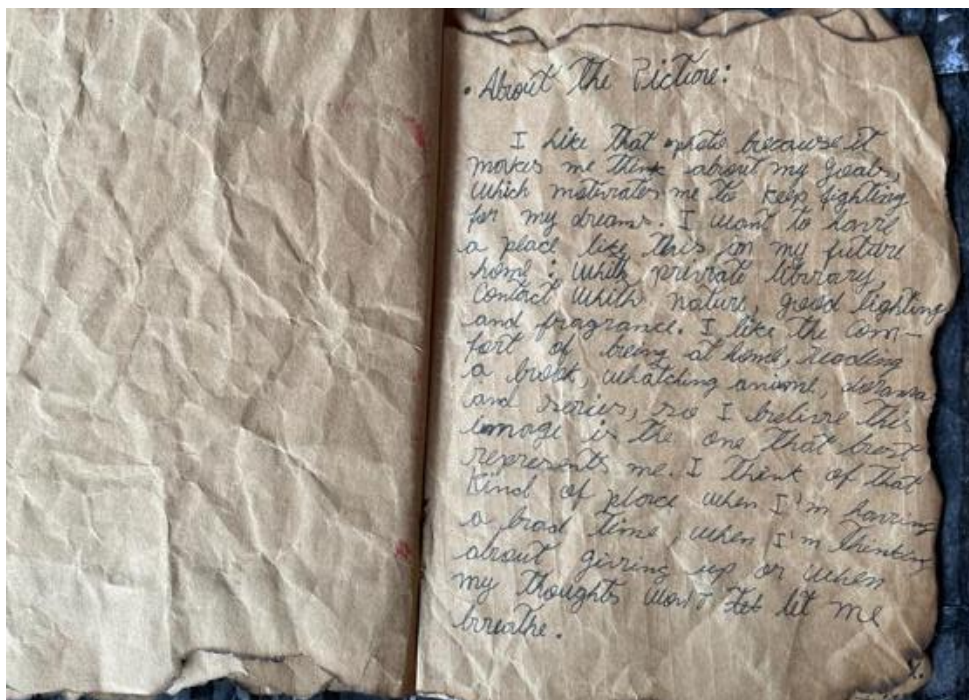 • About The Picture:
I like that photo because it
makes me think about my goals,
which motivates me to keep fighting
for my dreams. I want to have
a place like this in my future
home: whith private library,
contact whith nature, good lighting
and fragrance. I like the com-
fort of being at home, reading
a book, whatching anime, dorama
and series, so I belive this
image is the one that best
represents me. I think of that
kind of place when I'm having
a bad time, when I'm thinking
about giving up or when
my thoughts won't let me
breathe.